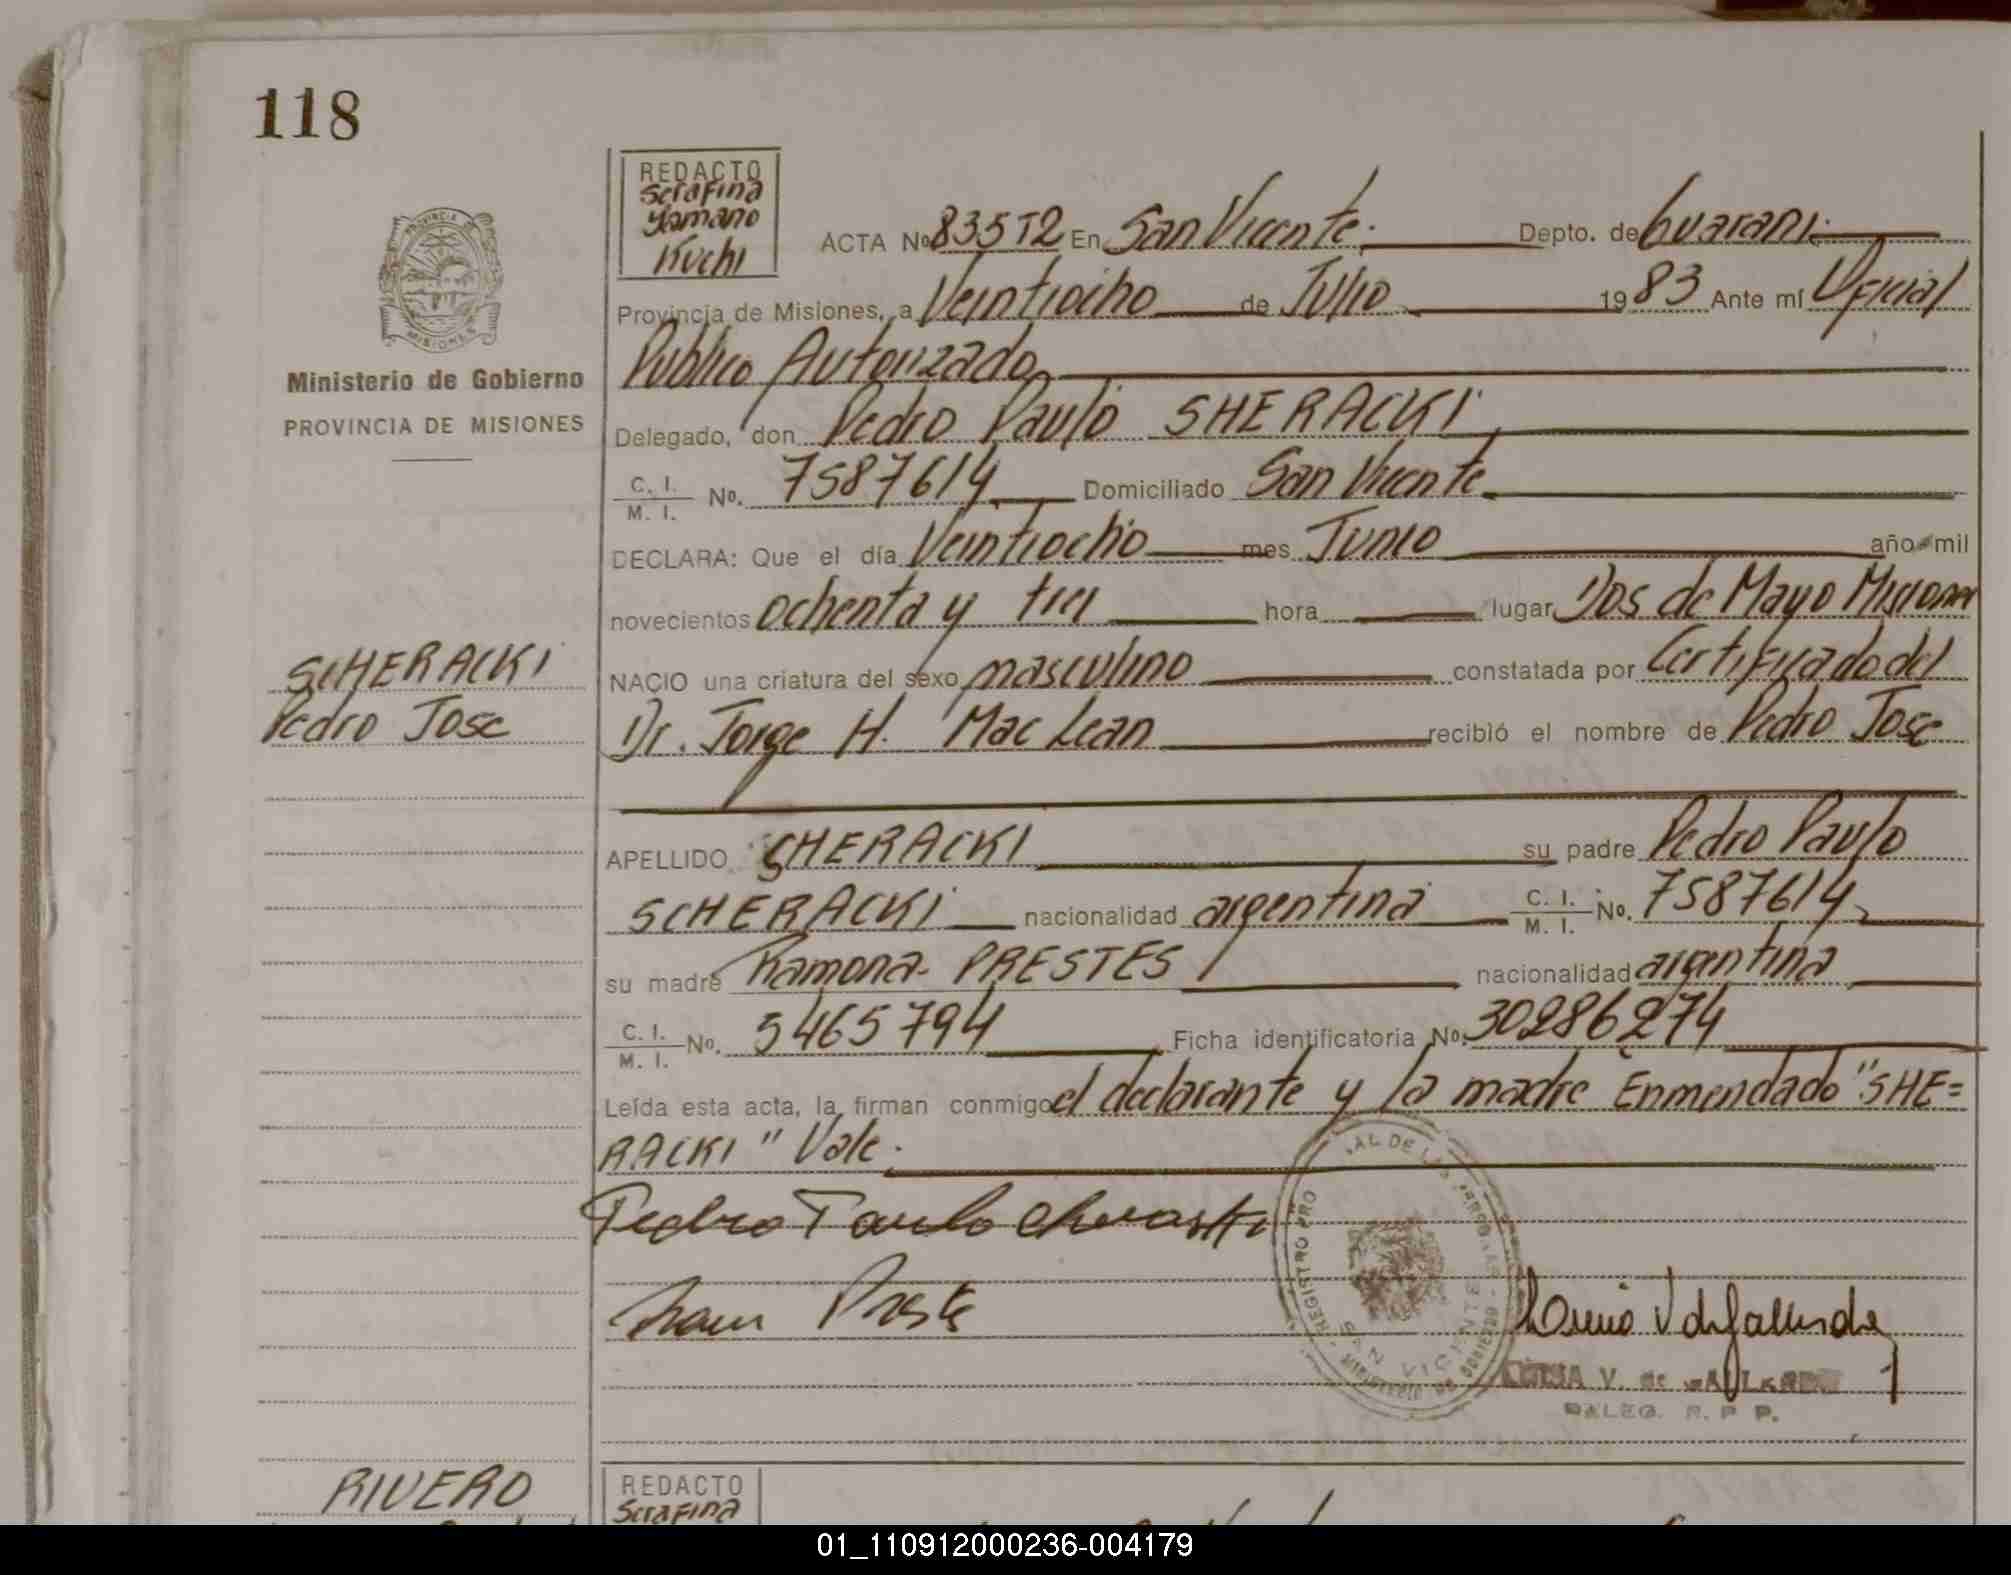 118
REDACTO
Serafina
Yamano
Kuchi
ACTA No 835T2 En San Vicente. Depto. de Guarani.
Provincia de Misiones, a Veintiocho de Julio 1983 Ante mí Oficial
Publico Autorizado
Delegado, don Pedro Paulo SHERACKI
C. I. / M. I. No. 7587614 Domiciliado San Vicente
DECLARA: Que el día Veintiocho mes Junio año mil
novecientos ochenta y tres hora lugar Dos de Mayo Misiones
NACIO una criatura del sexo masculino constatada por Certificado del
Dr. Jorge H. Mac Lean recibió el nombre de Pedro Jose
APELLIDO SHERACKI su padre Pedro Paulo
SCHERACKI nacionalidad argentina C. I. / M. I. No. 7587614
su madre Ramona PRESTES nacionalidad argentina
C. I. / M. I. No. 5465794 Ficha identificatoria No. 30286274
Leída esta acta, la firman conmigo el declarante y la madre Enmendado "SHE=
RACKI" Vale.
Pedro Paulo
PROVINCIA
MISIONES
Ministerio de Gobierno
PROVINCIA DE MISIONES
SCHERACKI
Pedro Jose
REGISTRO PRO AL DE LAS PERSONAS
SAN VICENTE
MINISTERIO DE GOBIERNO
V. de
DALEG. R. P. P.
RIVERO
REDACTO
Serafina
01_110912000236-004179